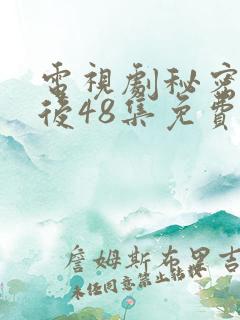 電視劇秘密
後48集免費
詹姆斯布里吉
未經同意禁止轉載